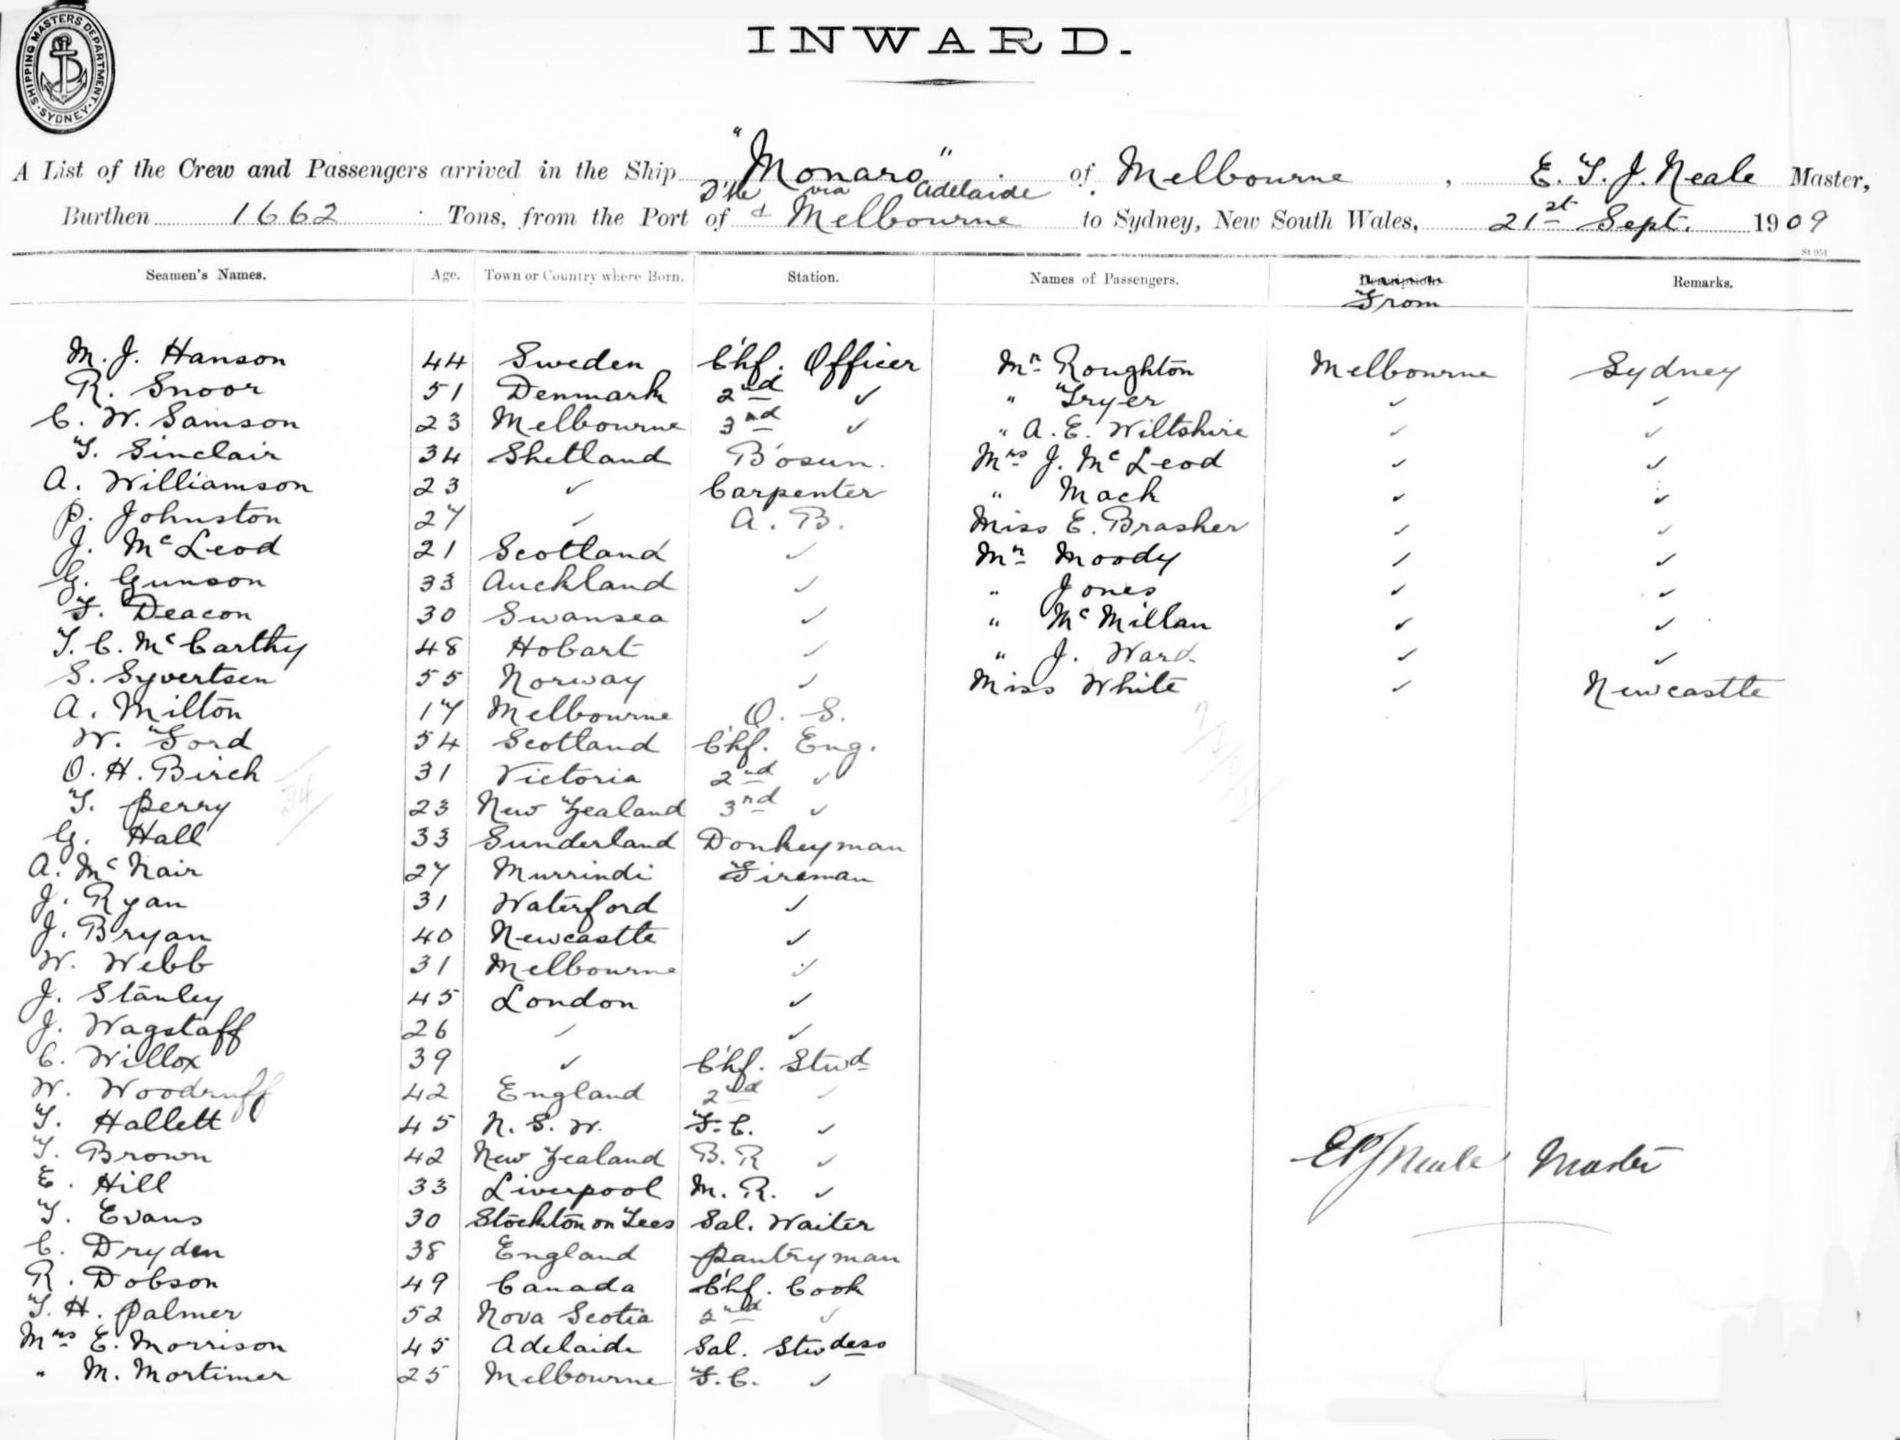 SHIPPING MASTERS DEPARTMENT. SYDNEY.
INWARD.
A List of the Crew and Passengers arrived in the Ship "Monaro" of Melbourne, E. T. J. Neale Master,
via Adelaide
Burthen 1662 Tons, from the Port of & Melbourne to Sydney, New South Wales, 21st Sept. 1909
St 951
Seamen's Names. Age. Town or Country where Born. Station. Names of Passengers. Descriptions Remarks.
From
M. J. Hanson 44 Sweden Chf. Officer Mr Roughton Melbourne Sydney
R. Snoor 51 Denmark 2nd ✓ " Fryer ✓ ✓
C. W. Samson 23 Melbourne 3rd ✓ " A. E. Wiltshire ✓ ✓
T. Sinclair 34 Shetland B'osun. Mrs J. McLeod ✓ ✓
A. Williamson 23 ✓ Carpenter " Mack ✓ ✓
P. Johnston 27 ✓ A. B. Miss E. Brasher ✓ ✓
J. McLeod 21 Scotland ✓ Mr Moody ✓ ✓
G. Gunson 33 Auckland ✓ " Jones ✓ ✓
F. Deacon 30 Swansea ✓ " McMillan ✓ ✓
T. C. McCarthy 48 Hobart ✓ " J. Ward ✓ ✓
S. Syvertsen 55 Norway ✓ Miss White ✓ Newcastle
A. Milton 17 Melbourne O. S.
W. Ford 54 Scotland Chf. Eng.
O. H. Birch 31 Victoria 2nd ✓
T. Perry 23 New Zealand 3rd ✓
G. Hall 33 Sunderland Donkeyman
A. McNair 27 Murrindi Fireman
J. Ryan 31 Waterford ✓
J. Bryan 40 Newcastle ✓
W. Webb 31 Melbourne ✓
J. Stanley 45 London ✓
J. Wagstaff 26 ✓ ✓
C. Willox 39 ✓ Chf. Stwd
W. Woodruff 42 England 2nd ✓
T. Hallett 45 N. S. W. F. C. ✓
T. Brown 42 New Zealand B. R ✓
E. Hill 33 Liverpool M. R. ✓
T. Evans 30 Stockton on Tees Sal. Waiter
C. Dryden 38 England Pantryman
R. Dobson 49 Canada Chf. Cook
T. H. Palmer 52 Nova Scotia 2nd ✓
Mrs E. Morrison 45 Adelaide Sal. Stwdess
" M. Mortimer 25 Melbourne F. C. ✓
ETJ Neale Master